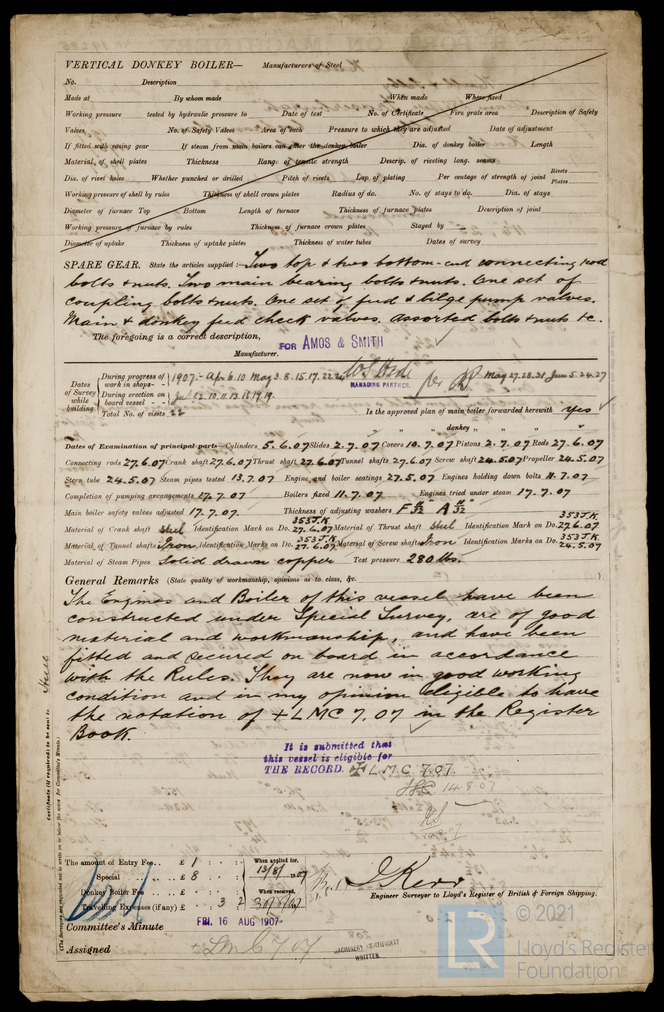 VERTICAL DONKEY BOILER— Manufacturers of Steel
No. Description
Made at By whom made When made Where fixed
Working pressure tested by hydraulic pressure to Date of test No. of Certificate Fire grate area Description of Safety
Valves No. of Safety Valves Area of each Pressure to which they are adjusted Date of adjustment
If fitted with easing gear If steam from main boilers can enter the donkey boiler Dia. of donkey boiler Length
Material of shell plates Thickness Range of tensile strength Descrip. of riveting long. seams
Dia. of rivet holes Whether punched or drilled Pitch of rivets Lap of plating Per centage of strength of joint Rivets Plates
Working pressure of shell by rules Thickness of shell crown plates Radius of do. No. of stays to do. Dia. of stays
Diameter of furnace Top Bottom Length of furnace Thickness of furnace plates Description of joint
Working pressure of furnace by rules Thickness of furnace crown plates Stayed by
Diameter of uptake Thickness of uptake plates Thickness of water tubes Dates of survey
SPARE GEAR. State the articles supplied:— Two top & two bottom end connecting rod
bolts & nuts. Two main bearing bolts & nuts. One set of
coupling bolts & nuts. One set of feed & bilge pump valves.
Main & donkey feed check valves. Assorted bolts & nuts &c.
The foregoing is a correct description,
FOR AMOS & SMITH
Manufacturer.
MANAGING PARTNER.
Dates of Survey while building
During progress of work in shops-- 1907:- Apr 6.10 May 3.8.15.17.22.24 May 27.28.31 June 5.24.27
During erection on board vessel---
Total No. of visits 22 Is the approved plan of main boiler forwarded herewith yes
" " " donkey " " " "
Dates of Examination of principal parts—Cylinders 5.6.07 Slides 2.7.07 Covers 10.7.07 Pistons 2.7.07 Rods 27.6.07
Connecting rods 27.6.07 Crank shaft 27.6.07 Thrust shaft 27.6.07 Tunnel shafts 27.6.07 Screw shaft 24.5.07 Propeller 24.5.07
Stern tube 24.5.07 Steam pipes tested 13.7.07 Engine and boiler seatings 27.5.07 Engines holding down bolts 11.7.07
Completion of pumping arrangements 17.7.07 Boilers fixed 11.7.07 Engines tried under steam 17.7.07
Main boiler safety valves adjusted 17.7.07. Thickness of adjusting washers
Material of Crank shaft steel Identification Mark on Do. 353 J.K. 27.6.07 Material of Thrust shaft steel Identification Mark on Do. 353 J.K. 27.6.07
Material of Tunnel shafts Iron Identification Marks on Do. 353 J.K. 27.6.07 Material of Screw shafts Iron Identification Marks on Do. 353 J.K. 24.5.07
Material of Steam Pipes Solid drawn copper Test pressure 280 lbs.
General Remarks (State quality of workmanship, opinions as to class, &c.
The Engines and Boiler of this vessel have been
constructed under Special Survey, are of good
material and workmanship, and have been
fitted and secured on board in accordance
with the Rules. They are now in good working
condition and in my opinion eligible to have
the notation of + LMC 7.07 in the Register
Book.
It is submitted that
this vessel is eligible for
THE RECORD. + LMC 7.07.
14.8.07
Certificate (if required) to be sent to Hull
(The Surveyors are requested not to write on or below the space for Committee's Minute.)
The amount of Entry Fee.. £ 1 : : When applied for,
Special £ 8 : : 13/8/1907
Donkey Boiler Fee £ : : When received,
Travelling Expenses (if any) £ : 3 : 2
J Kerr
Engineer Surveyor to Lloyd's Register of British & Foreign Shipping.
Committee's Minute FRI. 16 AUG 1907
Assigned + LMC 7.07
MACHINERY CERTIFICATE
WRITTEN
© 2021
LR
Lloyd's Register
Foundation